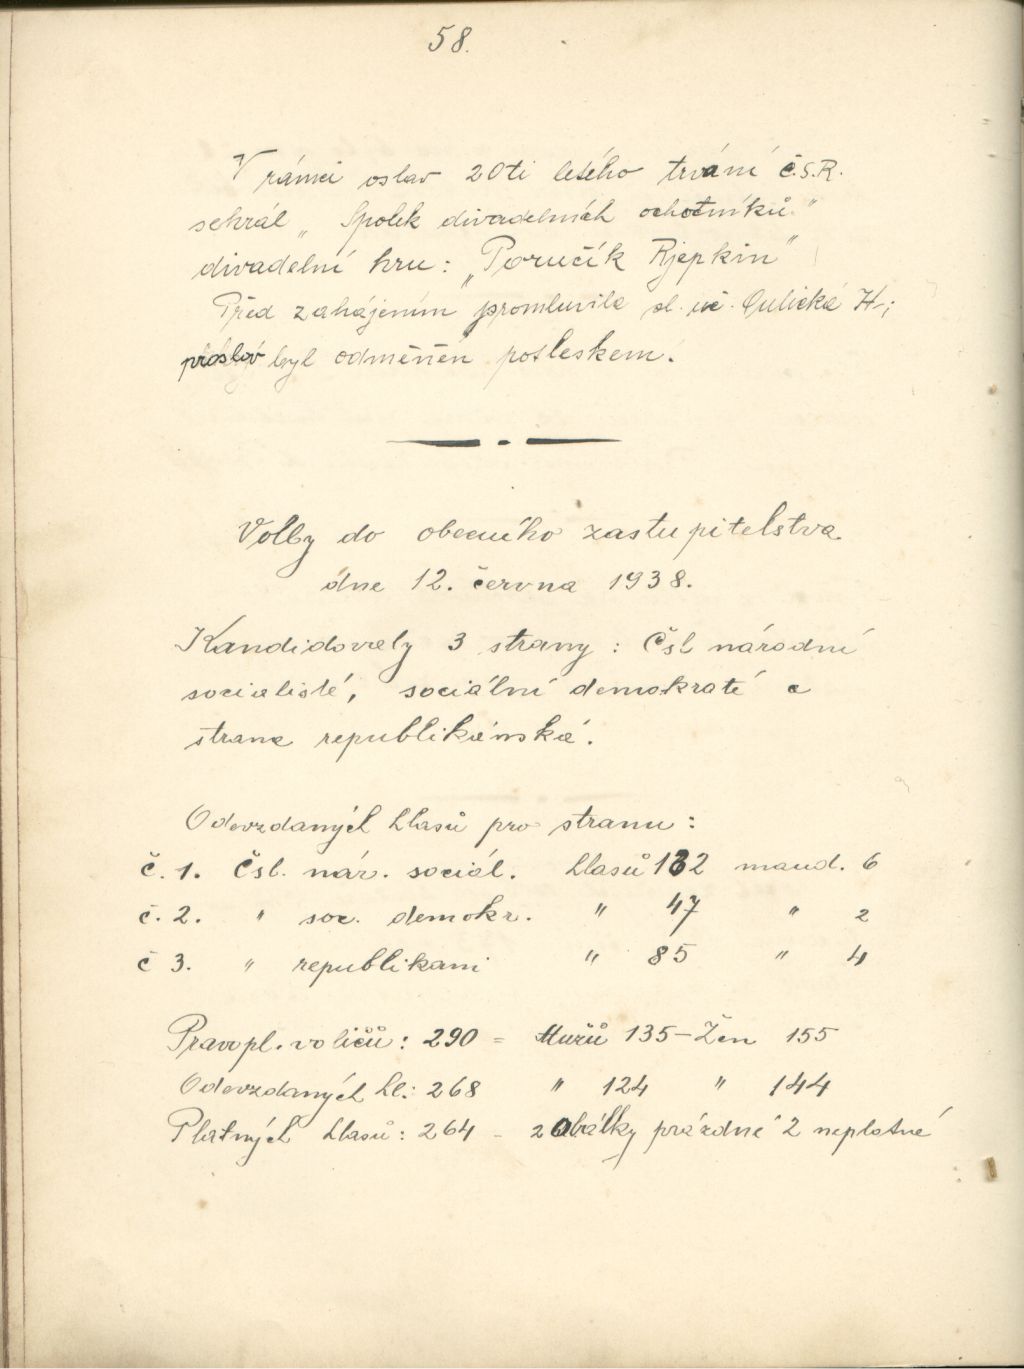 58.
V rámci oslav 20ti letého trvání č.S.R.
sehrál „Spolek divadelních ochotníků."
divadelní hru: „Poručík Rjepkin"
Před zahájením promluvila sl. uč. Qulická H.;
proslov byl odměněn potleskem.
Volby do obecního zastupitelstva.
dne 12. června 1938.
Kandidovaly 3 strany: Čsl národní
socialisté, sociální demokraté a
strana republikánská.
Odevzdaných hlasů pro stranu:
č. 1. Čsl. nár. sociál. hlasů 132 mand. 6
č. 2. " soc. demokr. " 47 " 2
č 3. " republikani " 85 " 4
Pravopl. voličů: 290 = Mužů 135 – Žen 155
Odevzdaných hl.: 268 " 124 " 144
Platných hlasů: 264 – 2 obálky prázdné 2 neplatné